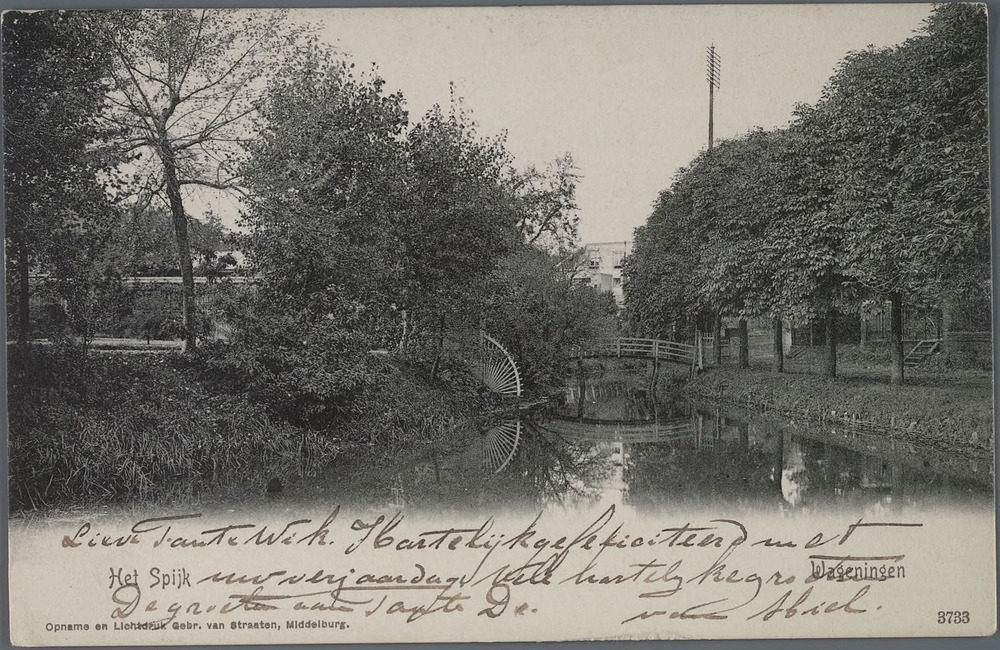 Lieve Tante Wik. Hartelijkgefeliciteerd met
Het Spijk uw verjaardag Vele hartelijke groeten Wageningen
De groeten aan Tante De. van Abiel.
Opname en Lichtdruk Gebr. van Straaten, Middelburg. 3733